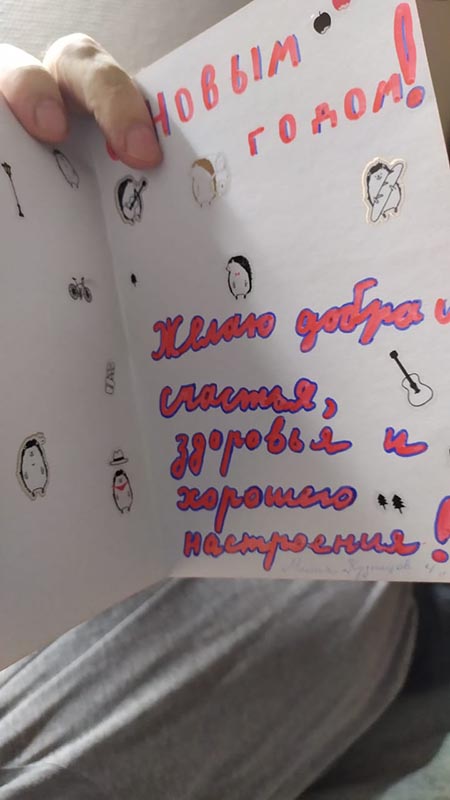 Новым
годом!
Желаю добра и
счастья,
здоровья и
хорошего
настроения!
Миша Кузнецов